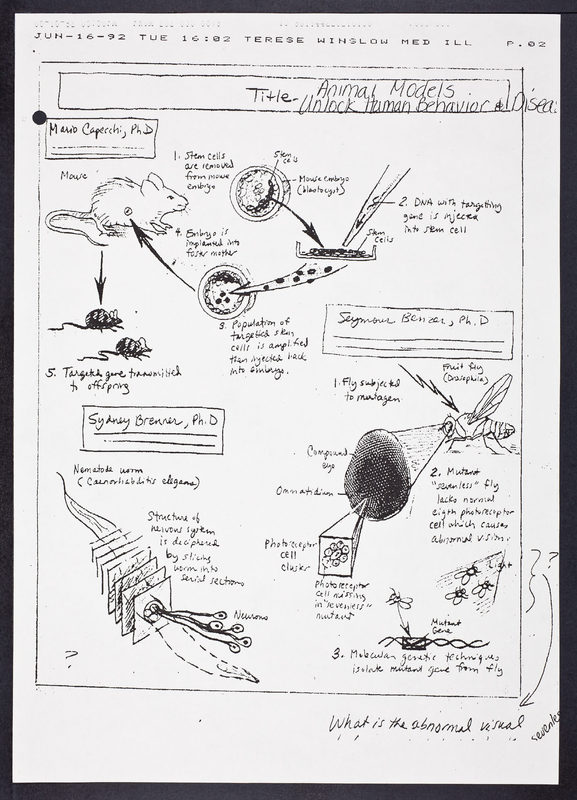 JUN-16-92 TUE 16:02 TERESE WINSLOW MED ILL P.02
Title- Animal Models
Unlock Human Behavior & Disea
Mario Capecchi, Ph.D
Mouse
1. Stem cells
are removed
from mouse
embryo
Stem
cells
Mouse embryo
(blastocyst)
2. DNA with targetting
gene is injected
into stem cell
Stem
cells
4. Embryo is
implanted into
foster mother
3. Population of
targetted stem
cells is amplified
then injected back
into embryo.
5. Targeted gene transmitted
to offspring
Seymour Benzer, Ph.D
Fruit fly
(Drosophila)
1. Fly subjected
to mutagen.
Compound
eye
Ommatidium
2. Mutant
"sevenless" fly
lacks normal
eigth photoreceptor
cell which causes
abnormal vision.
Photoreceptor
cell
cluster
Photoreceptor
cell missing
in "sevenless"
mutant
Light
??
Mutant
Gene
3. Molecular genetic techniques
isolate mutant gene from fly
Sydney Brenner, Ph.D
Nematode worm
(Caenorhabditis elegans)
Structure of
nervous system
is deciphered
by slicing
worm into
serial sections
Neurons
?
What is the abnormal visual
sevenles